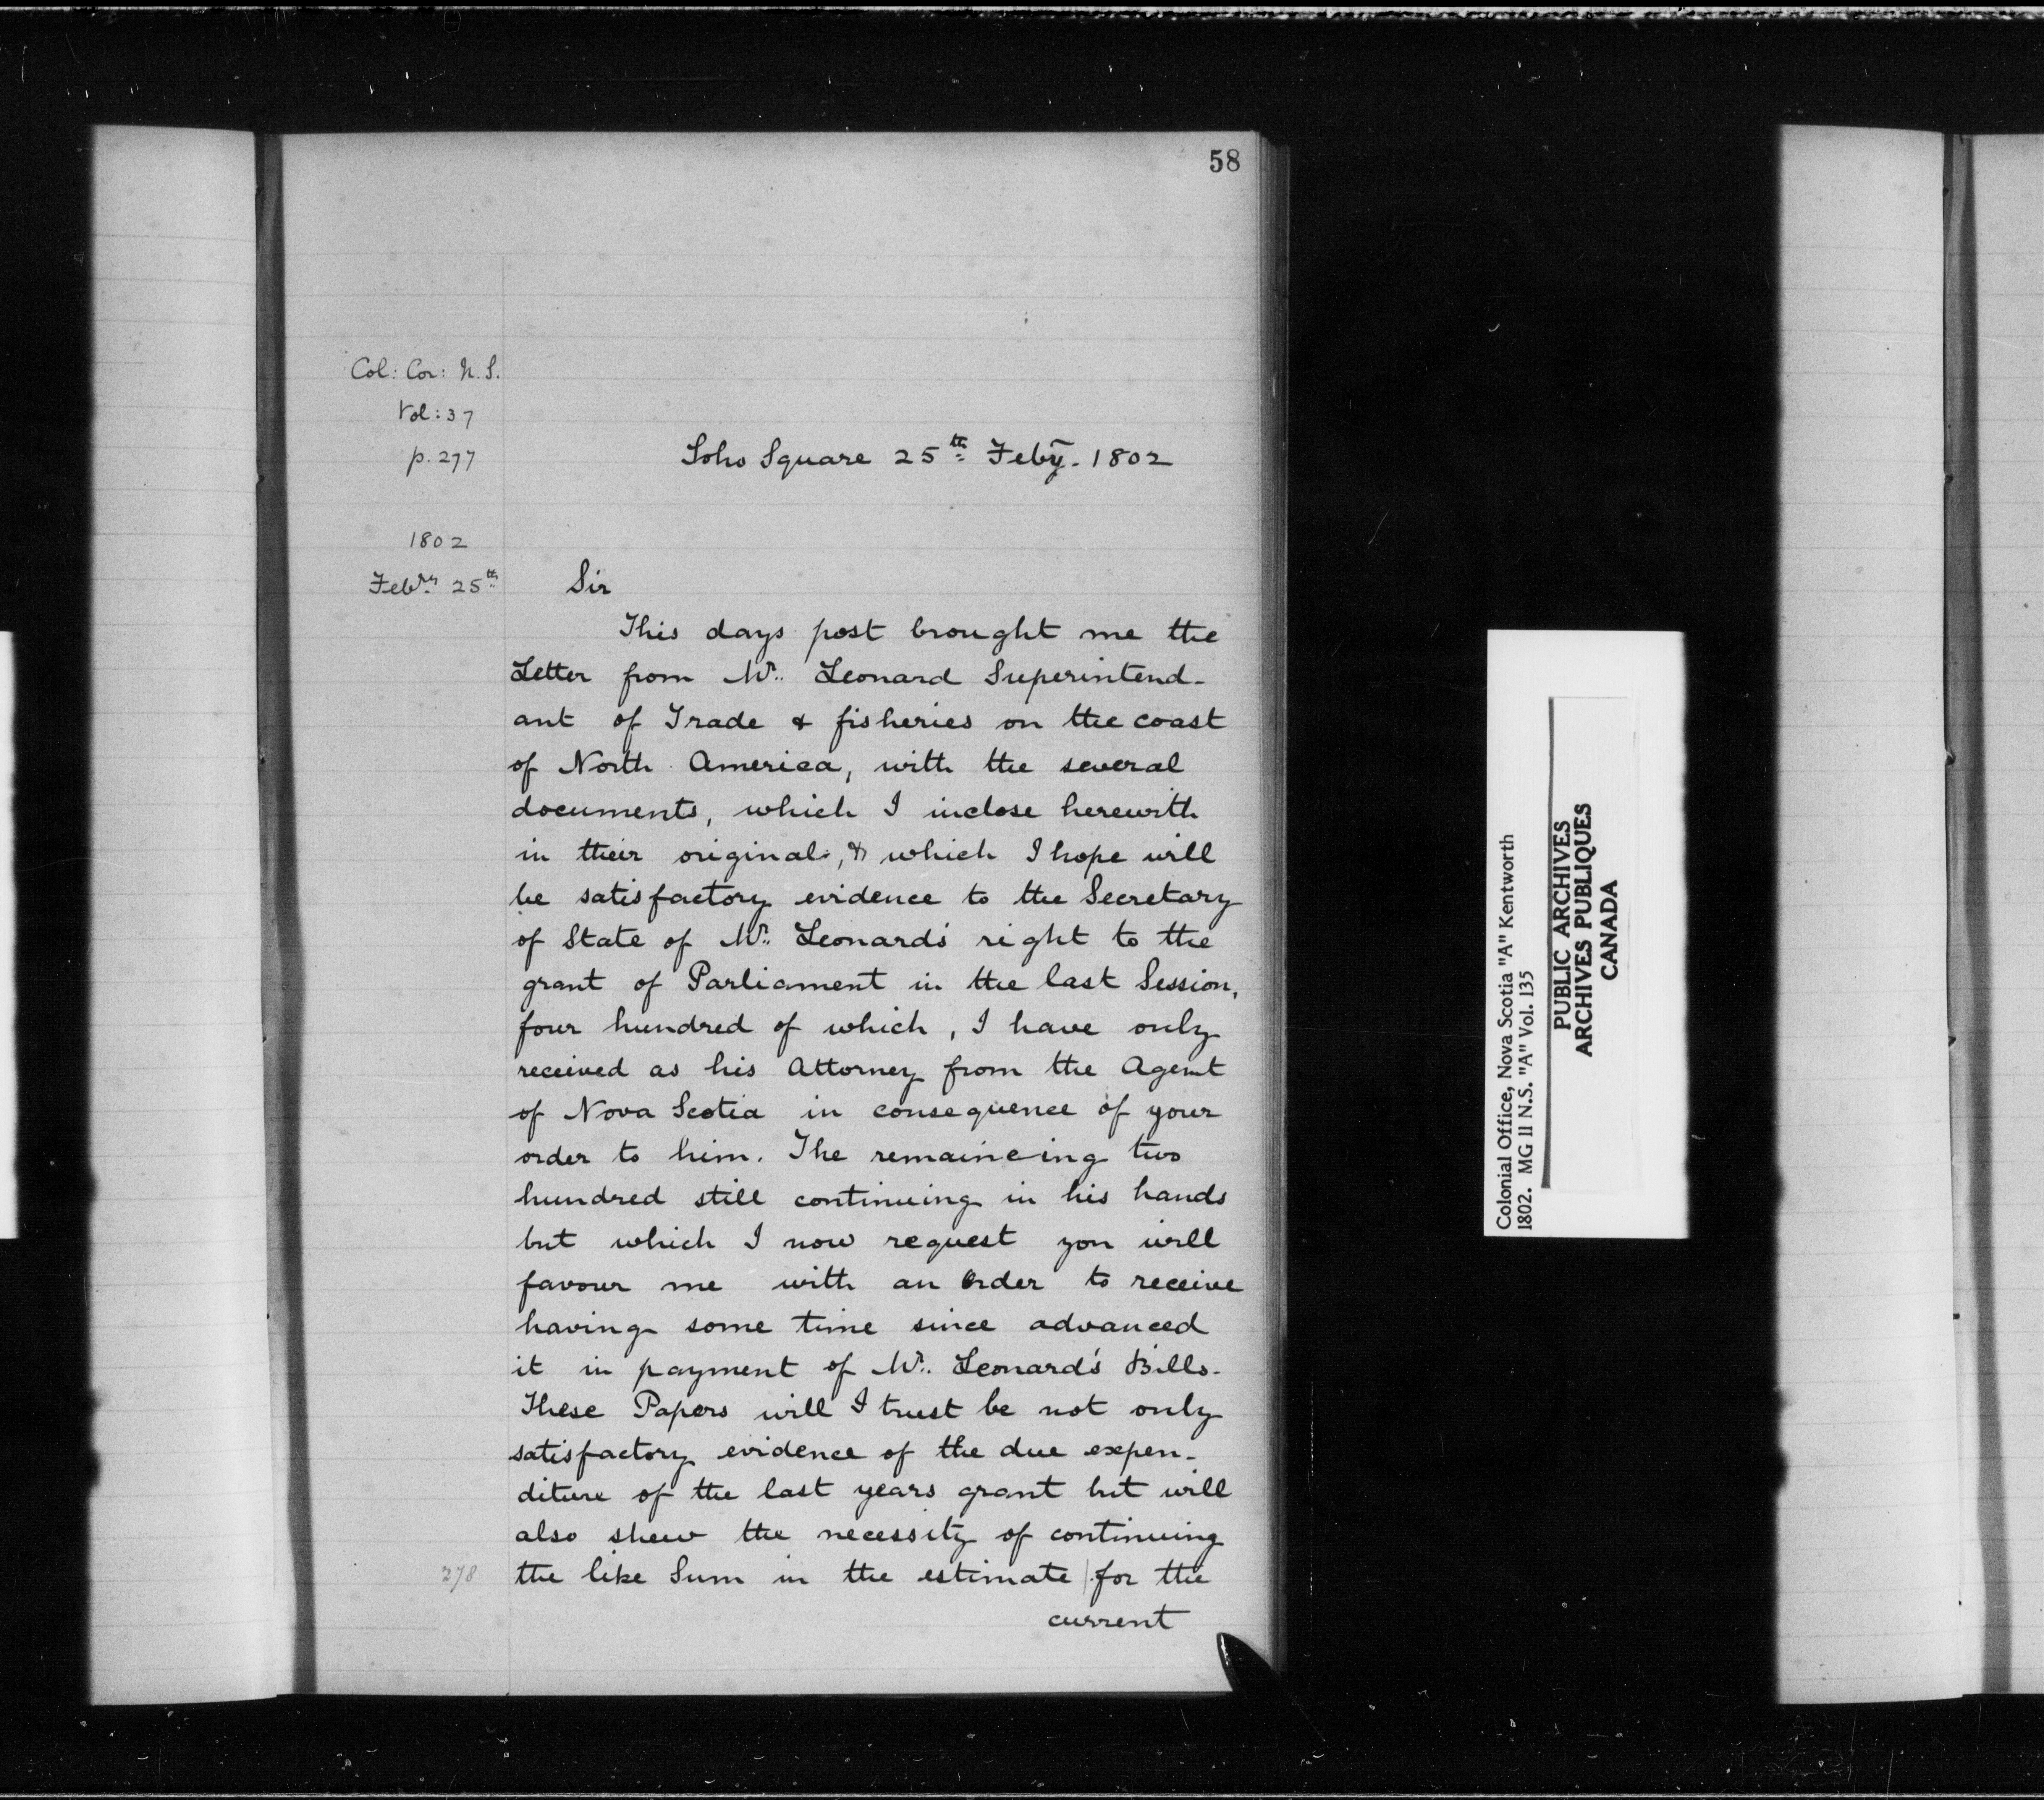 58
Col: Cor: N.S.
Vol: 37
p. 277
Soho Square 25th Feby. 1802
1802
Febry 25th
Sir
This days post brought me the
Letter from Mr. Leonard Superintend-
ant of Trade & fisheries on the coast
of North America, with the several
documents, which I inclose herewith
in their original, & which I hope will
be satisfactory evidence to the Secretary
of State of Mr. Leonard's right to the
grant of Parliament in the last Session,
four hundred of which, I have only
received as his Attorney from the Agent
of Nova Scotia in consequence of your
order to him. The remaineing two
hundred still continuing in his hands
but which I now request you will
favour me with an Order to receive
having some time since advanced
it in payment of Mr. Leonard's Bills.
These Papers will I trust be not only
satisfactory evidence of the due expen-
diture of the last years grant but will
also shew the necessity of continuing
278
the like Sum in the estimate | for the
current
Colonial Office, Nova Scotia "A" Kentworth
1802. MG 11 N.S. "A" Vol. 135
PUBLIC ARCHIVES
ARCHIVES PUBLIQUES
CANADA